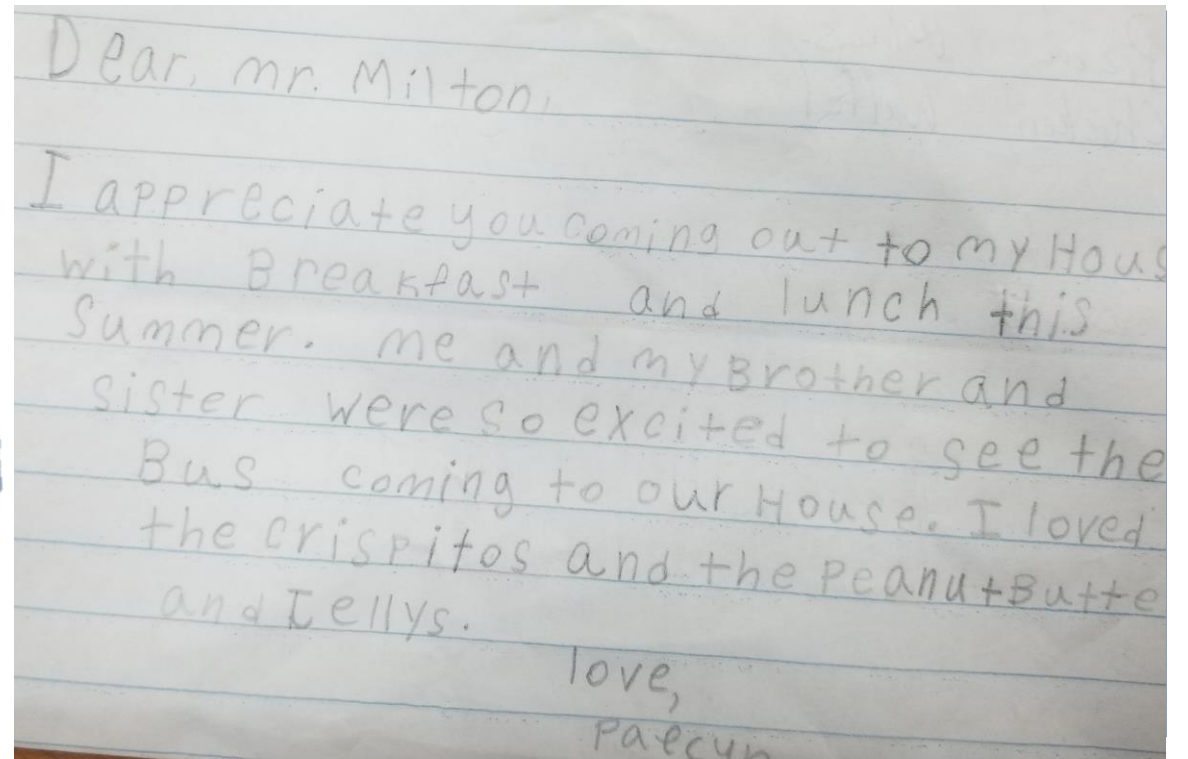 Dear, mr. Milton,
I appreciate you coming out to my Hous
with Breakfast and lunch this
Summer. me and my Brother and
sister were so excited to see the
Bus coming to our House. I loved
the crispitos and the PeanutButte
and Iellys.
love,